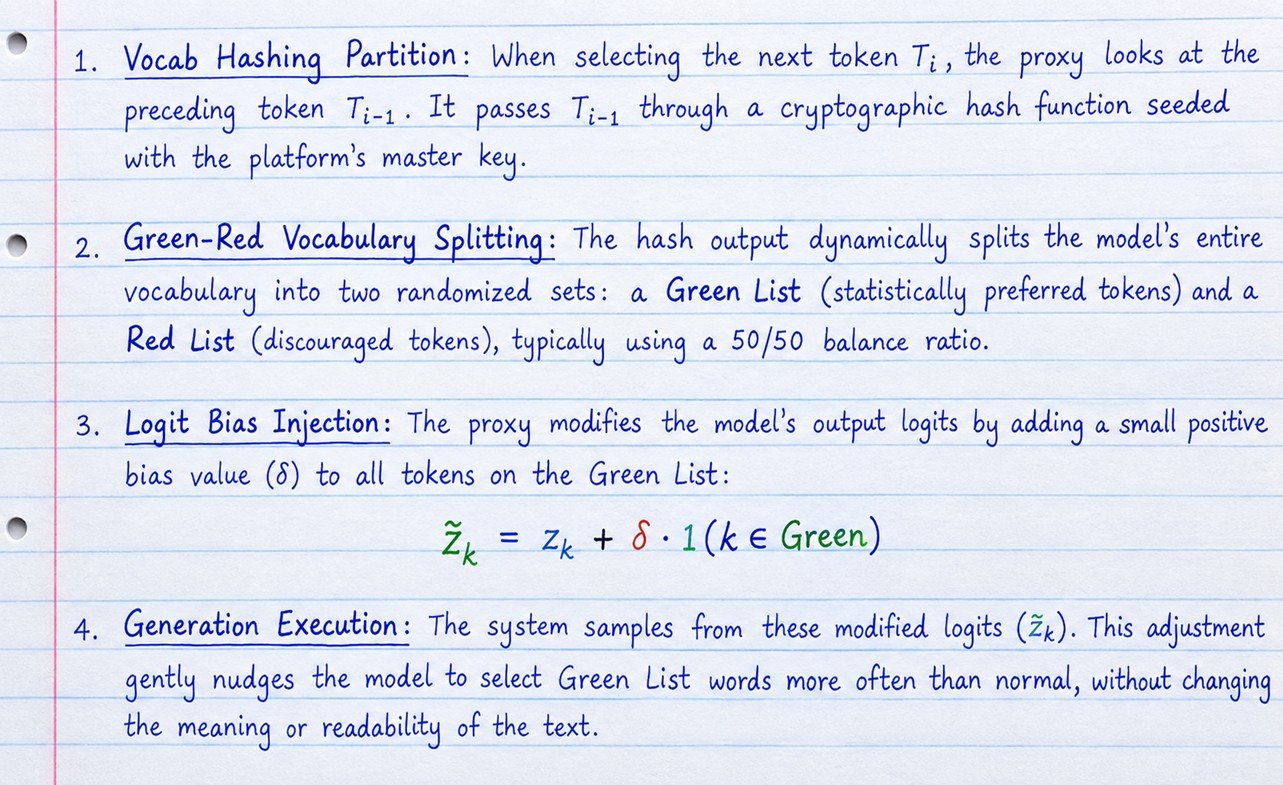 1. Vocab Hashing Partition: When selecting the next token Tᵢ, the proxy looks at the
preceding token Tᵢ₋₁. It passes Tᵢ₋₁ through a cryptographic hash function seeded
with the platform's master key.
2. Green-Red Vocabulary Splitting: The hash output dynamically splits the model's entire
vocabulary into two randomized sets: a Green List (statistically preferred tokens) and a
Red List (discouraged tokens), typically using a 50/50 balance ratio.
3. Logit Bias Injection: The proxy modifies the model's output logits by adding a small positive
bias value (δ) to all tokens on the Green List:
z̃ₖ = zₖ + δ · 1(k ∈ Green)
4. Generation Execution: The system samples from these modified logits (z̃ₖ). This adjustment
gently nudges the model to select Green List words more often than normal, without changing
the meaning or readability of the text.